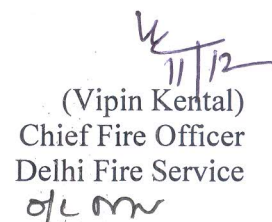 11/12
(Vipin Kental)
Chief Fire Officer
Delhi Fire Service